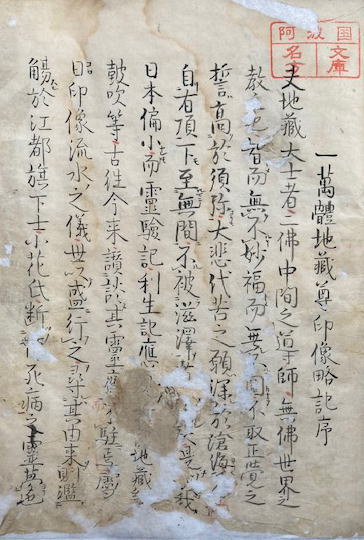 阿波国
文庫
一萬體地藏尊印像略記序
夫地藏大士者二佛中間之導師無佛世界之
教主也智而無不妙福而無不圓不取正覺之
誓高於須弥大悲代苦之願深於滄海
自有頂下至無間不被滋澤是以我
日本偏小而靈驗記利生記應地藏
皷吹等古往今来讃談其靈應
日印像流水之儀世以盛行之尋其由来則濫
觴於江都旗下士小花氏断死病之靈